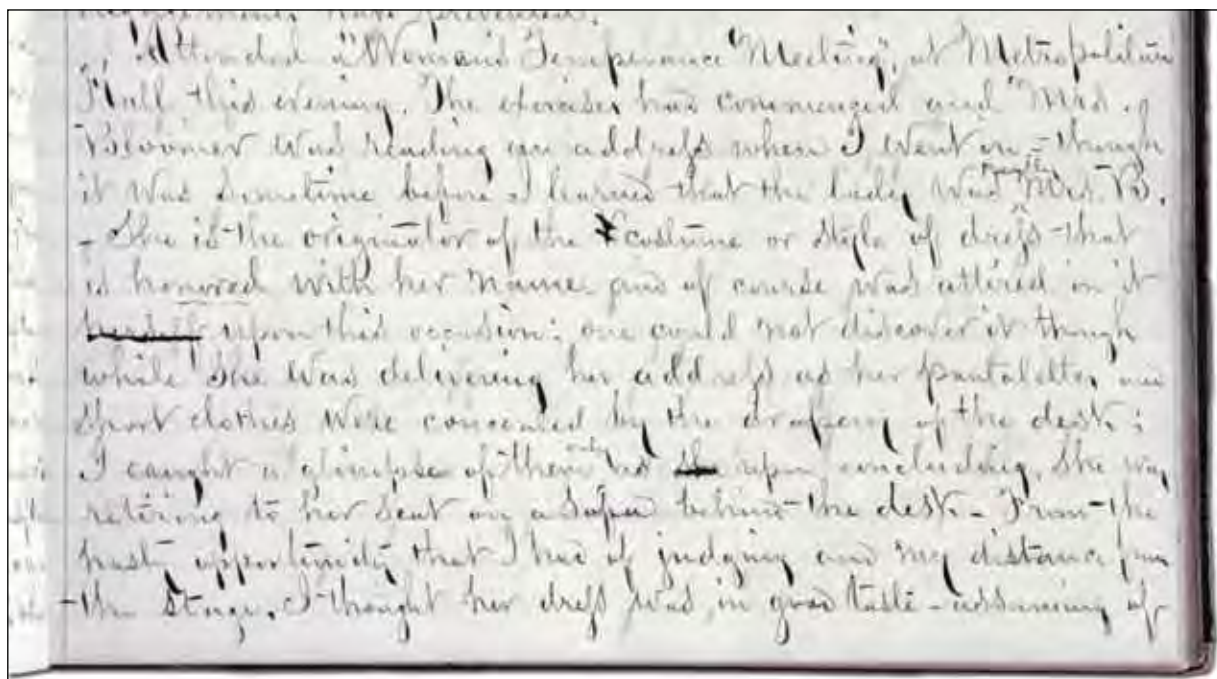 have prevented.
Attended a "Woman's Temperance Meeting", at Metropolitan
Hall this evening. The exercises had commenced and Mrs.
Bloomer was reading an address when I went in – though
it was sometime before I learned that the lady was Mrs. B.
– She is the originator of the costume or style of dress that
is honored with her name and of course was attired in it
herself upon this occasion; one could not discover it though
while she was delivering her address as her pantalettes an
short clothes were concealed by the drapery of the desk;
I caught a glimpse of them only as she upon concluding, she was
retiring to her seat on a sofa behind the desk – From the
hasty opportunity that I had of judging and my distance from
the stage, I thought her dress was in good taste – assuming of